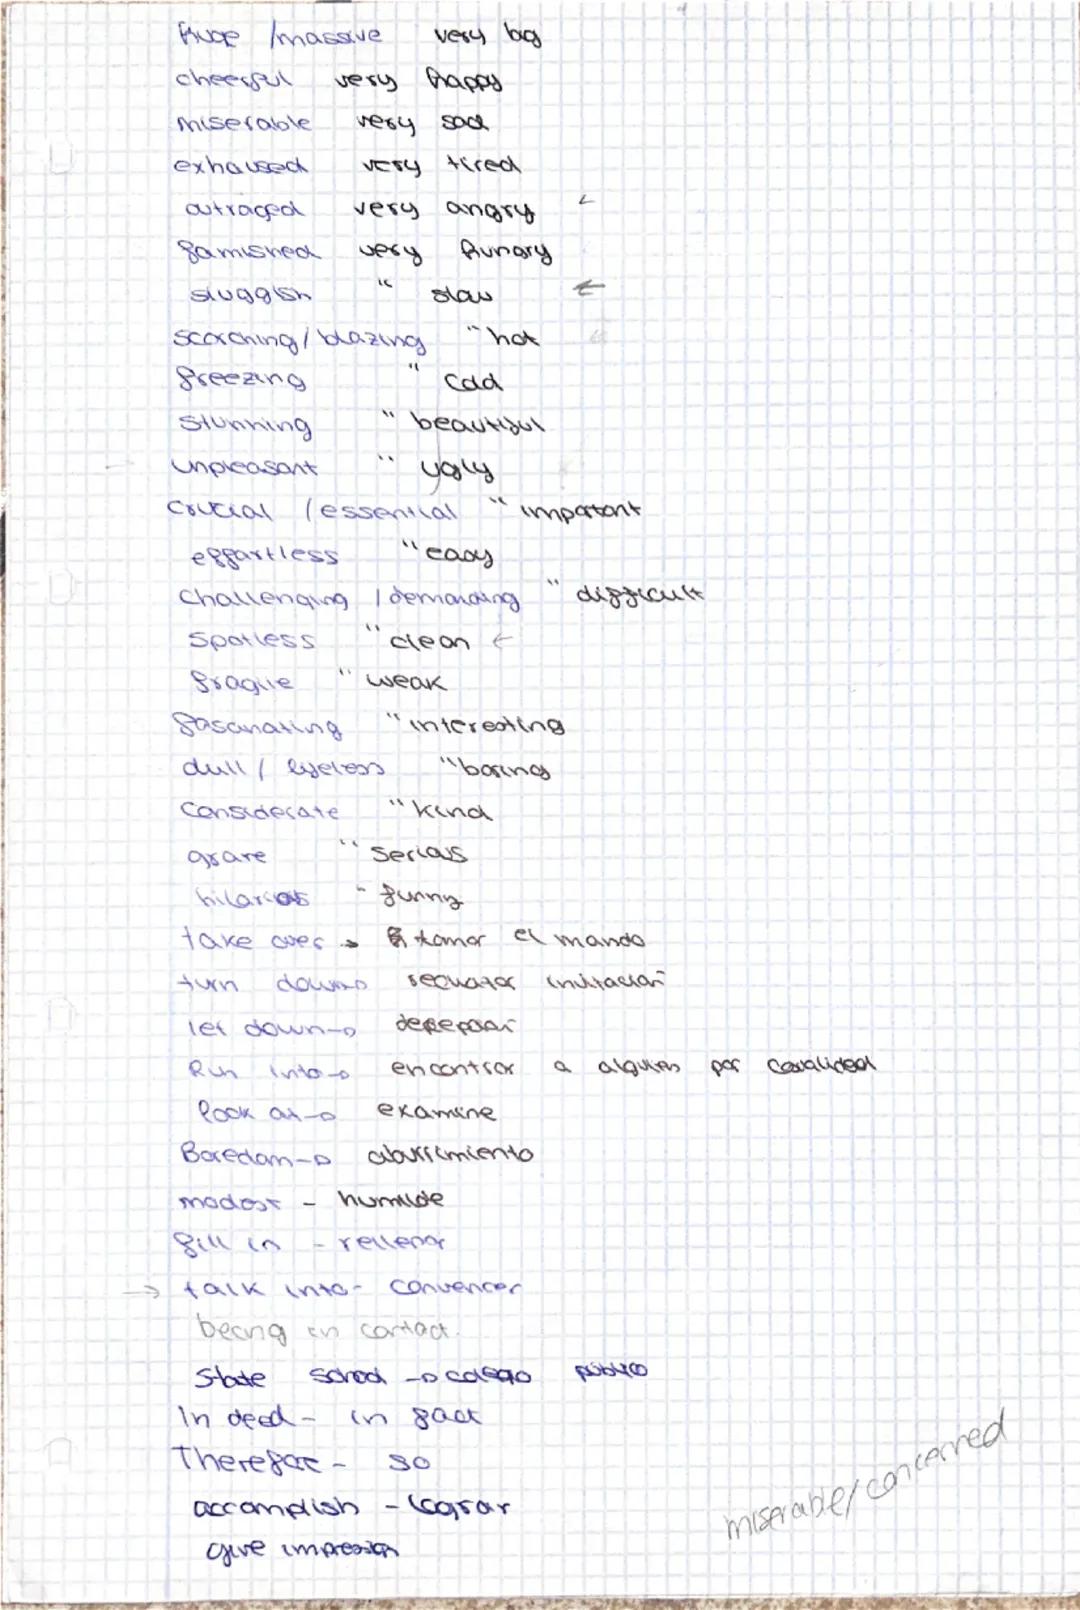 huge /massive very big
cheerful very happy
miserable very sad
exhaused very tired
outraged very angry ←
famished very hungry
sluggish " slow ←
scorching/blazing " hot
freezing " cold
stunning " beautiful
unpleasant " ugly
crucial /essential " important
effortless " easy
challenging /demanding " difficult
spotless " clean ←
fragile " weak
fascinating " interesting
dull / lifeless " boring
considerate " kind
grave " serious
hilarious " funny
take over → tomar el mando
turn down→ rechazar invitación
let down→
Run into→ encontrar a alguien por casualidad
look at→ examine
Boredom→ aburrimiento
modest - humilde
fill in - rellenar
→ talk into- convencer
being in contact.
State school → colegio público
In deed - in fact
Therefor - so
accomplish - lograr
give impression
miserable/concerned